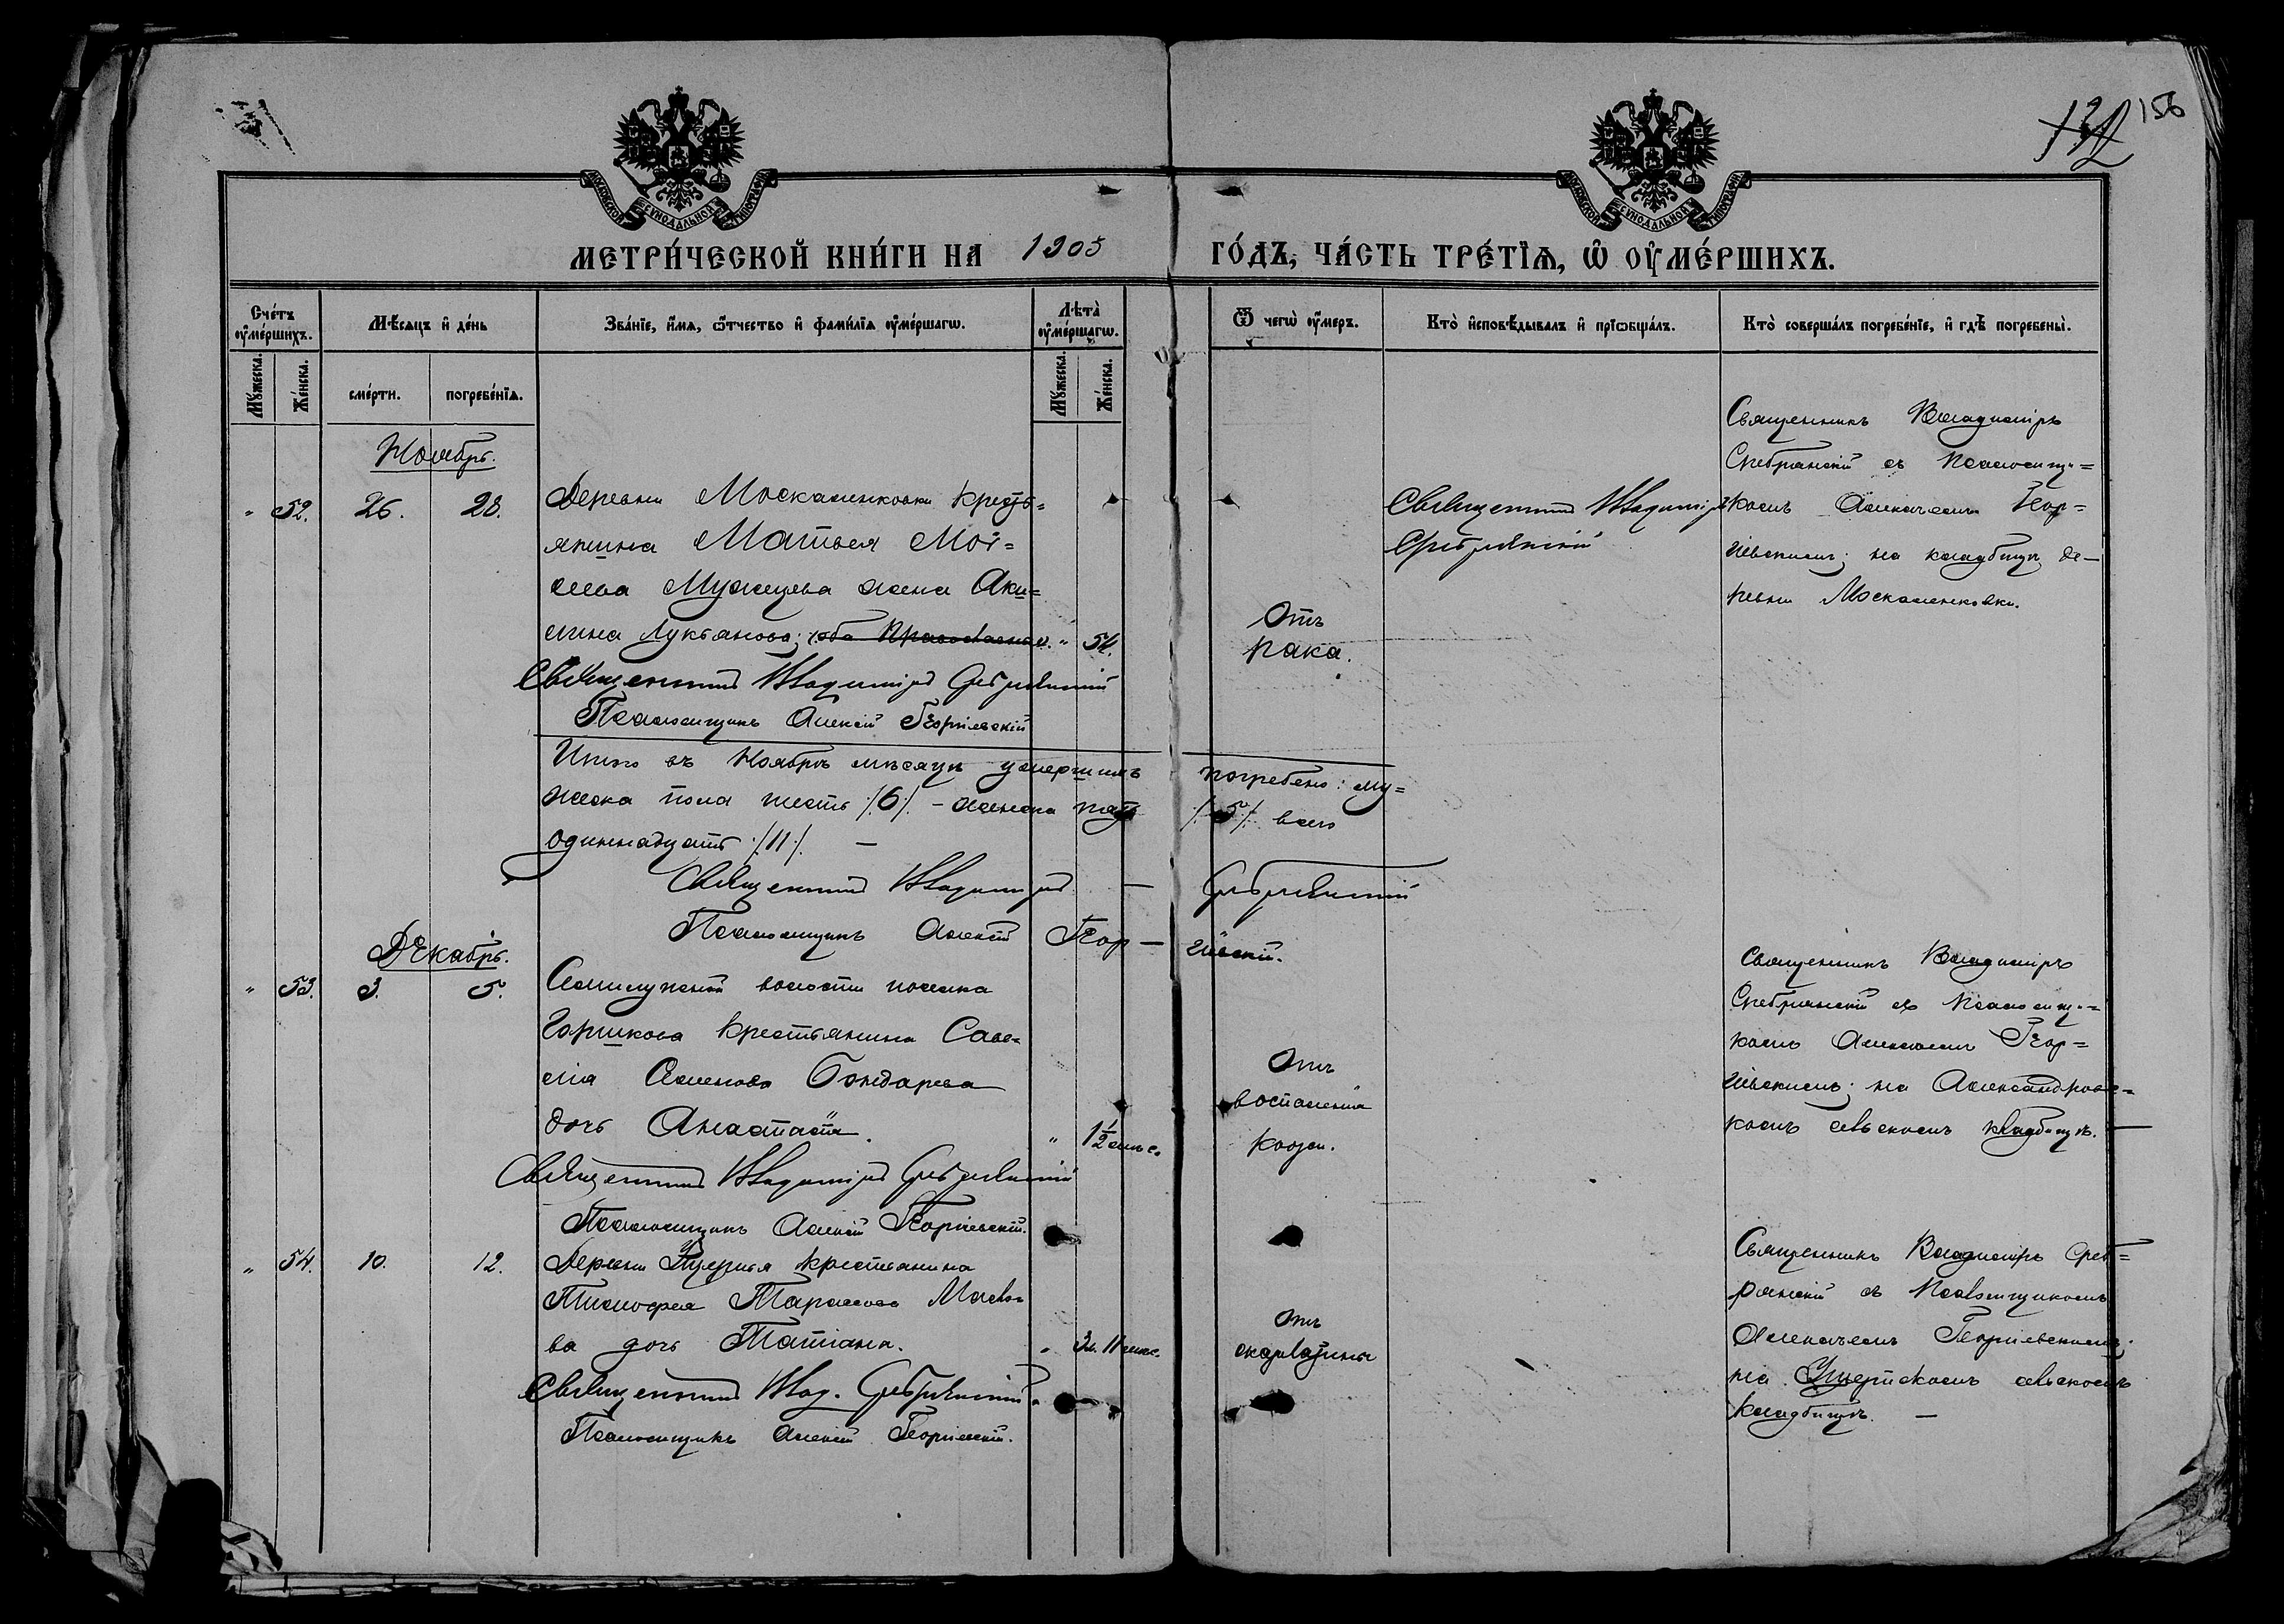 132 156
МОСКОВСКОЙ СѴНОДАЛЬНОЙ ТИПОГРАФІИ
МОСКОВСКОЙ СѴНОДАЛЬНОЙ ТИПОГРАФІИ
МЕТРИ́ЧЕСКОЙ КНИ́ГИ НА 1905 ГО́ДЪ, ЧА́СТЬ ТРЕ́ТЇѦ, Ѡ҆ ОУ҆МЕ́РШИХЪ.
Сче́тъ оу҆ме́ршихъ.
Мꙋ́жеска.
Же́нска.
Мѣ́сѧцъ и҆ де́нь
сме́рти.
погребе́нїѧ.
Зва́нїе, и҆́мѧ, ѻ҆́тчество и҆ фами́лїѧ оу҆ме́ршагѡ.
Лѣ́та оу҆ме́ршагѡ.
Мꙋ́жеска.
Же́нска.
Ѿ чегѡ̀ оу҆́меръ.
Кто̀ и҆сповѣ́дывалъ и҆ прїѡбща́лъ.
Кто̀ соверша́лъ погребе́нїе, и҆ гдѣ̀ погребены̀.
Ноябрь.
" 52. 26. 28.
Деревни Москаленковки кресть=
янина Матвея Мої=
сеева жена Аку=
лина Лукьянова; оба Православная. " 54.
Священникъ Владиміръ Сребрянскій
Псаломщикъ Алексій Георгіевскій
Отъ
рака.
Священникъ Владиміръ
Сребрянскій
Священникъ Владиміръ
Сребрянскій съ Псаломщи=
комъ Алексѣемъ Геор=
гіевскимъ; на кладбищѣ де-
ревни Москаленковки.
Итого въ Ноябрѣ мѣсяцѣ умершихъ погребено: му=
жеска пола шесть /6/. - женска пять /5/ всего
одиннадцать /11/. —
Священникъ Владиміръ — Сребрянскій
Псаломщикъ Алексій Геор — гіевскій.
Декабрь.
" 53. 3. 5.
волости поселка
Горшкова крестьянина Саве=
лія Семенова Бондарева
дочь Анастасія. " 1½ мѣс.
Священникъ Владиміръ Сребрянскій
Псаломщикъ Алексій Георгіевскій.
Отъ
воспаленія
кожи.
Священникъ Владиміръ
Сребрянскій съ Псаломщи=
комъ Алексѣемъ Геор=
гіевскимъ; на Александровс=
комъ сельскомъ кладбищѣ. —
" 54. 10. 12.
Деревни крестьянина
Тимофея Тарасова
ва дочь Татіана. " 3л. 11 мѣс.
Священникъ Влад. Сребрянскій.
Псаломщикъ Алексій Георгіевскій.
Отъ
скарлатины
Священникъ Владиміръ Среб=
рянскій съ Псаломщикомъ
Алексѣемъ Георгіевскимъ;
на сельскомъ
кладбищѣ. —